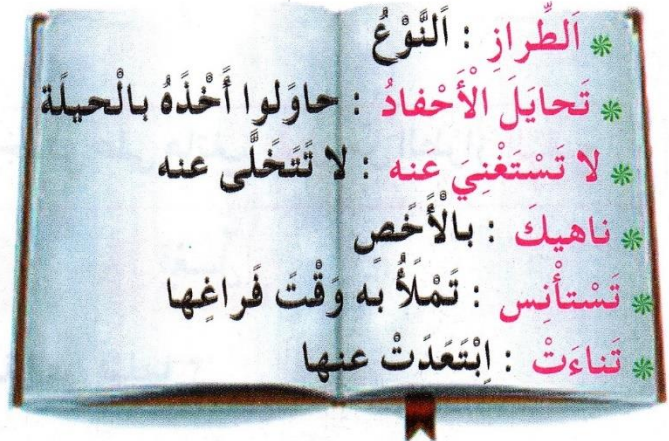 اَلطِّرازِ : اَلنَّوْعُ
تَحايَلَ الْأَحْفادُ : حاوَلوا أَخْذَهُ بالْحيلَة
لا تَسْتَغْنِيَ عَنه : لا تَتَخَلَّى عنه
ناهيكَ : بالْأَخَصِ
تَسْتأْنِس : تَمْلَأُ به وَقْتَ فَراغِها
تَناءَتْ : اِبْتَعَدَتْ عنها